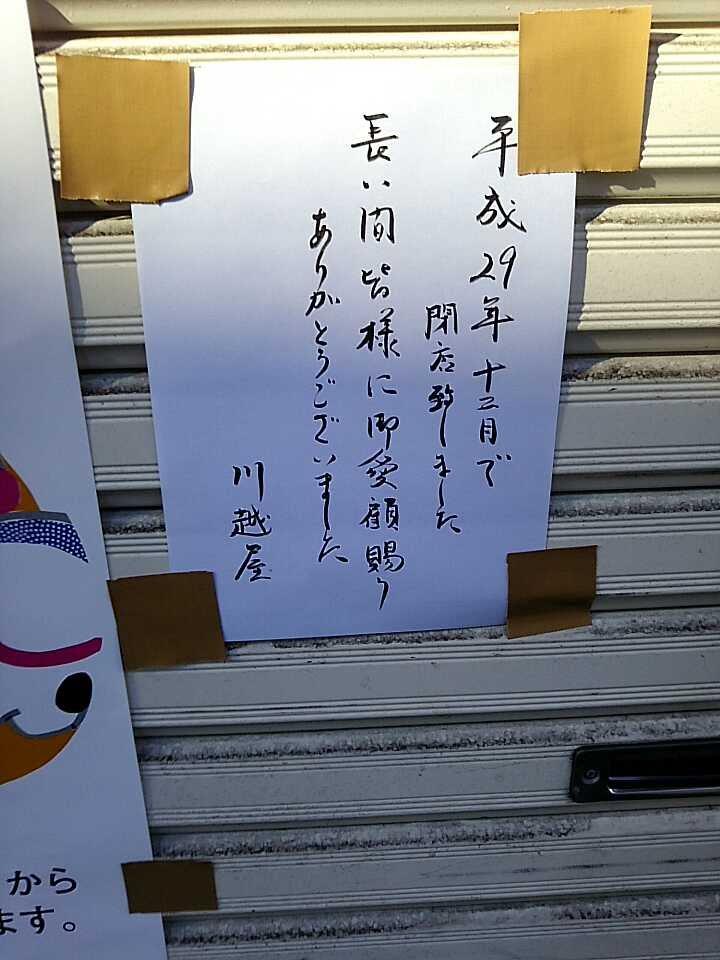 平成29年十二月で
閉店致しました
長い間皆様に御愛顧賜り
ありがとうございました
川越屋
から
ます。